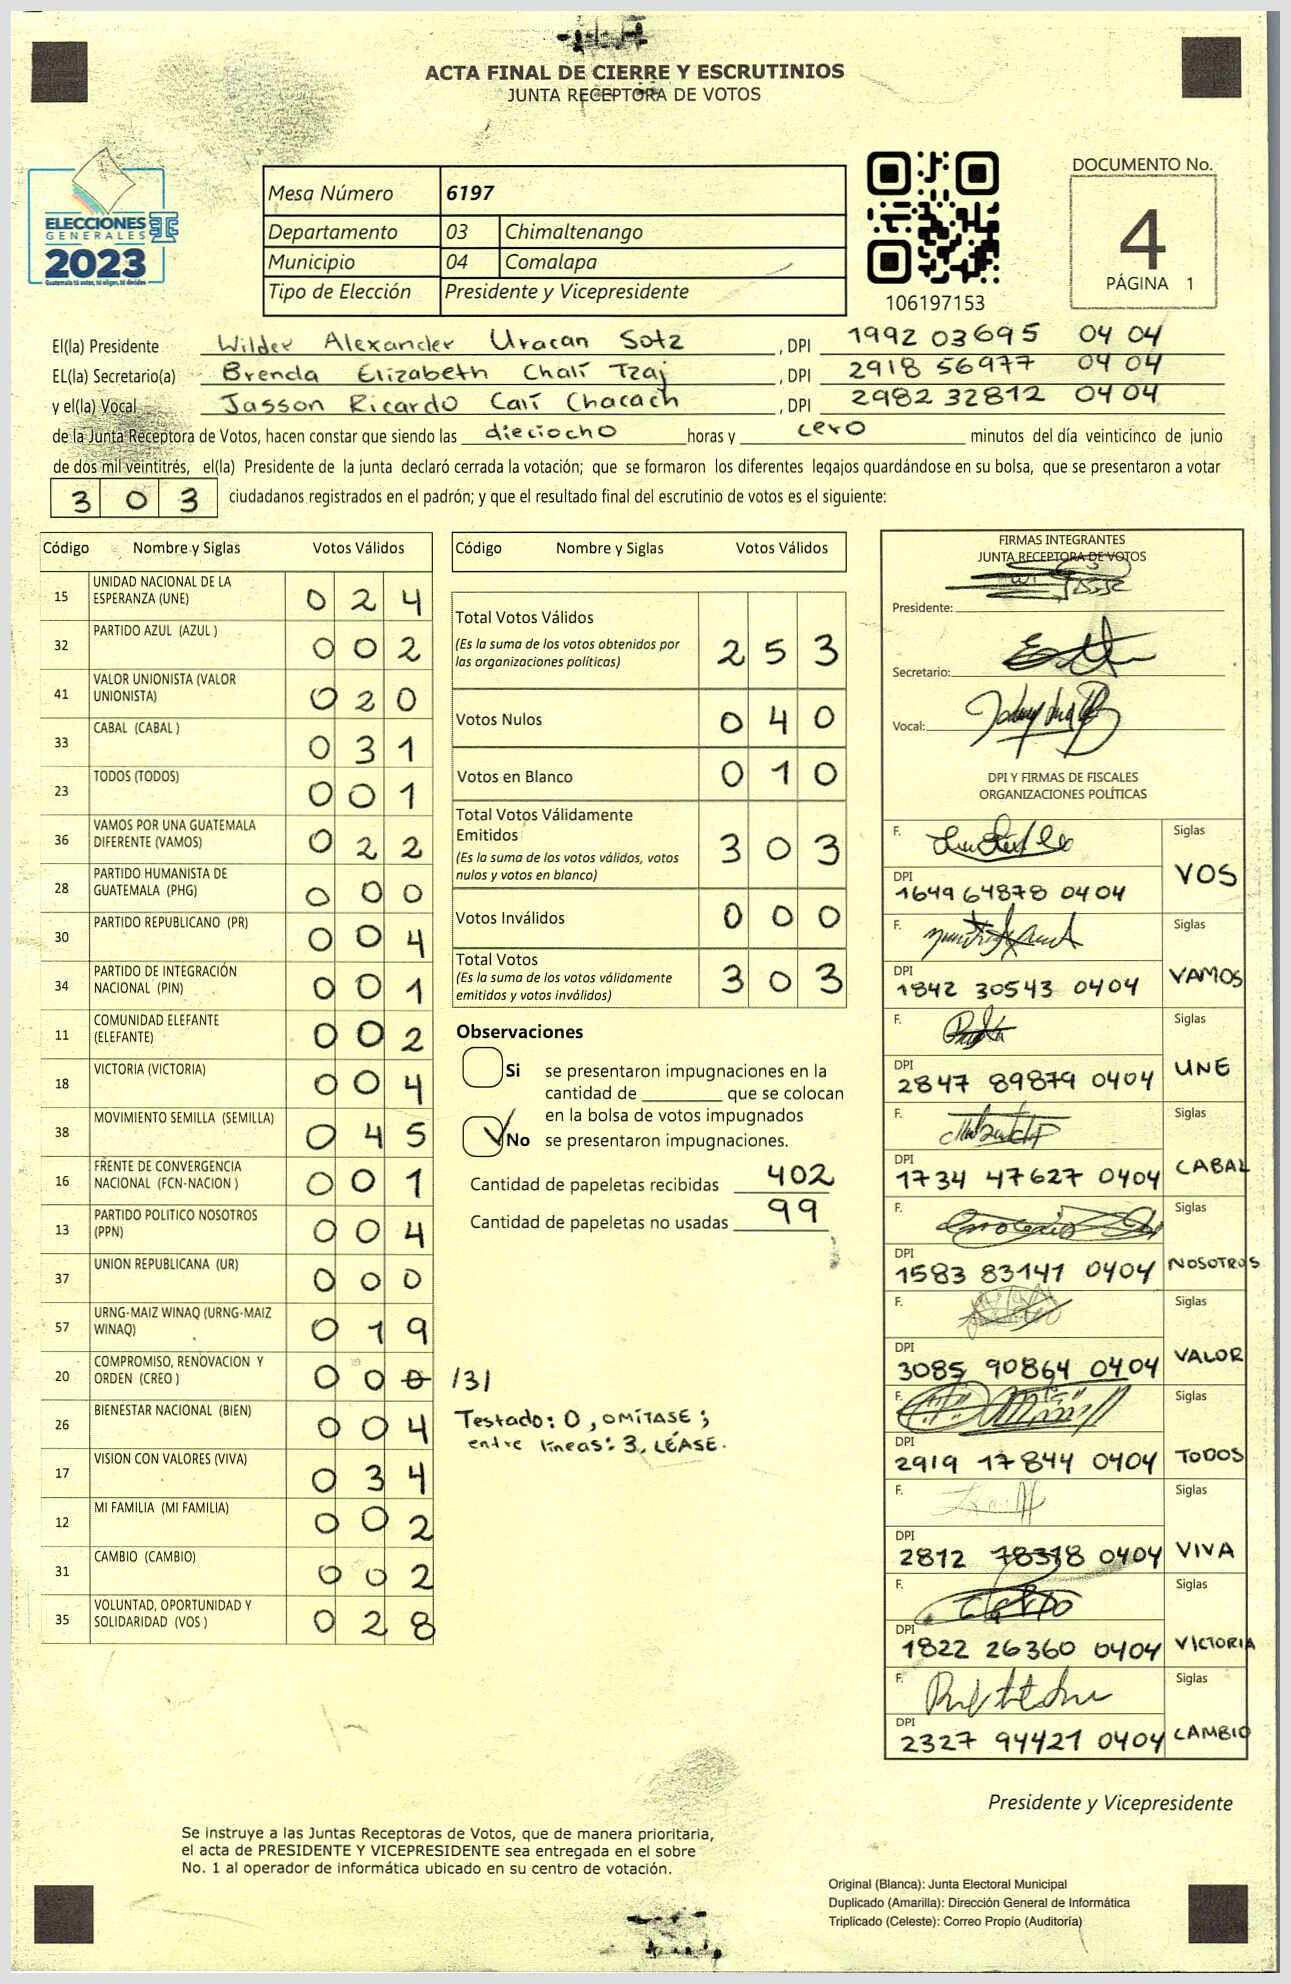 ACTA FINAL DE CIERRE Y ESCRUTINIOS
JUNTA RECEPTORA DE VOTOS
ELECCIONES
GENERALES
2023
Guatemala tú votas, tú eliges, tú decides
Mesa Número 6197
Departamento 03 Chimaltenango
Municipio 04 Comalapa
Tipo de Elección Presidente y Vicepresidente
106197153
DOCUMENTO No.
4
PÁGINA 1
El(la) Presidente Wilder Alexander Uracan Sotz , DPI 1992 03695 04 04
EL(la) Secretario(a) Brenda Elizabeth Chalí Tzaj , DPI 2918 56977 04 04
y el(la) Vocal Jasson Ricardo Calí Chacach , DPI 2982 32812 04 04
de la Junta Receptora de Votos, hacen constar que siendo las dieciocho horas y cero minutos del día veinticinco de junio
de dos mil veintitrés, el(la) Presidente de la junta declaró cerrada la votación; que se formaron los diferentes legajos guardándose en su bolsa, que se presentaron a votar
3 0 3 ciudadanos registrados en el padrón; y que el resultado final del escrutinio de votos es el siguiente:
Código Nombre y Siglas Votos Válidos
15 UNIDAD NACIONAL DE LA ESPERANZA (UNE) 0 2 4
32 PARTIDO AZUL (AZUL ) 0 0 2
41 VALOR UNIONISTA (VALOR UNIONISTA) 0 2 0
33 CABAL (CABAL ) 0 3 1
23 TODOS (TODOS) 0 0 1
36 VAMOS POR UNA GUATEMALA DIFERENTE (VAMOS) 0 2 2
28 PARTIDO HUMANISTA DE GUATEMALA (PHG) 0 0 0
30 PARTIDO REPUBLICANO (PR) 0 0 4
34 PARTIDO DE INTEGRACIÓN NACIONAL (PIN) 0 0 1
11 COMUNIDAD ELEFANTE (ELEFANTE) 0 0 2
18 VICTORIA (VICTORIA) 0 0 4
38 MOVIMIENTO SEMILLA (SEMILLA) 0 4 5
16 FRENTE DE CONVERGENCIA NACIONAL (FCN-NACION ) 0 0 1
13 PARTIDO POLITICO NOSOTROS (PPN) 0 0 4
37 UNION REPUBLICANA (UR) 0 0 0
57 URNG-MAIZ WINAQ (URNG-MAIZ WINAQ) 0 1 9
20 COMPROMISO, RENOVACION Y ORDEN (CREO ) 0 0 0 /3/
26 BIENESTAR NACIONAL (BIEN) 0 0 4
17 VISION CON VALORES (VIVA) 0 3 4
12 MI FAMILIA (MI FAMILIA) 0 0 2
31 CAMBIO (CAMBIO) 0 0 2
35 VOLUNTAD, OPORTUNIDAD Y SOLIDARIDAD (VOS ) 0 2 8
Código Nombre y Siglas Votos Válidos
Total Votos Válidos 2 5 3
(Es la suma de los votos obtenidos por
las organizaciones políticas)
Votos Nulos 0 4 0
Votos en Blanco 0 1 0
Total Votos Válidamente
Emitidos 3 0 3
(Es la suma de los votos válidos, votos
nulos y votos en blanco)
Votos Inválidos 0 0 0
Total Votos 3 0 3
(Es la suma de los votos válidamente
emitidos y votos inválidos)
Observaciones
Si se presentaron impugnaciones en la
cantidad de ________ que se colocan
en la bolsa de votos impugnados
No se presentaron impugnaciones.
Cantidad de papeletas recibidas 402
Cantidad de papeletas no usadas 99
Testado: 0, OMÍTASE;
entre líneas: 3, LÉASE.
FIRMAS INTEGRANTES
JUNTA RECEPTORA DE VOTOS
Presidente:
Secretario:
Vocal:
DPI Y FIRMAS DE FISCALES
ORGANIZACIONES POLÍTICAS
F. Siglas
DPI VOS
1649 64878 0404
F. Siglas
DPI VAMOS
1842 30543 0404
F. Siglas
DPI UNE
2847 89879 0404
F. Siglas
DPI CABAL
1734 47627 0404
F. Siglas
DPI NOSOTROS
1583 83141 0404
F. Siglas
DPI VALOR
3085 90864 0404
F. Siglas
DPI TODOS
2919 17844 0404
F. Siglas
DPI VIVA
2812 78318 0404
F. Siglas
DPI VICTORIA
1822 26360 0404
F. Siglas
DPI CAMBIO
2327 94421 0404
Presidente y Vicepresidente
Se instruye a las Juntas Receptoras de Votos, que de manera prioritaria,
el acta de PRESIDENTE Y VICEPRESIDENTE sea entregada en el sobre
No. 1 al operador de informática ubicado en su centro de votación.
Original (Blanca): Junta Electoral Municipal
Duplicado (Amarilla): Dirección General de Informática
Triplicado (Celeste): Correo Propio (Auditoría)